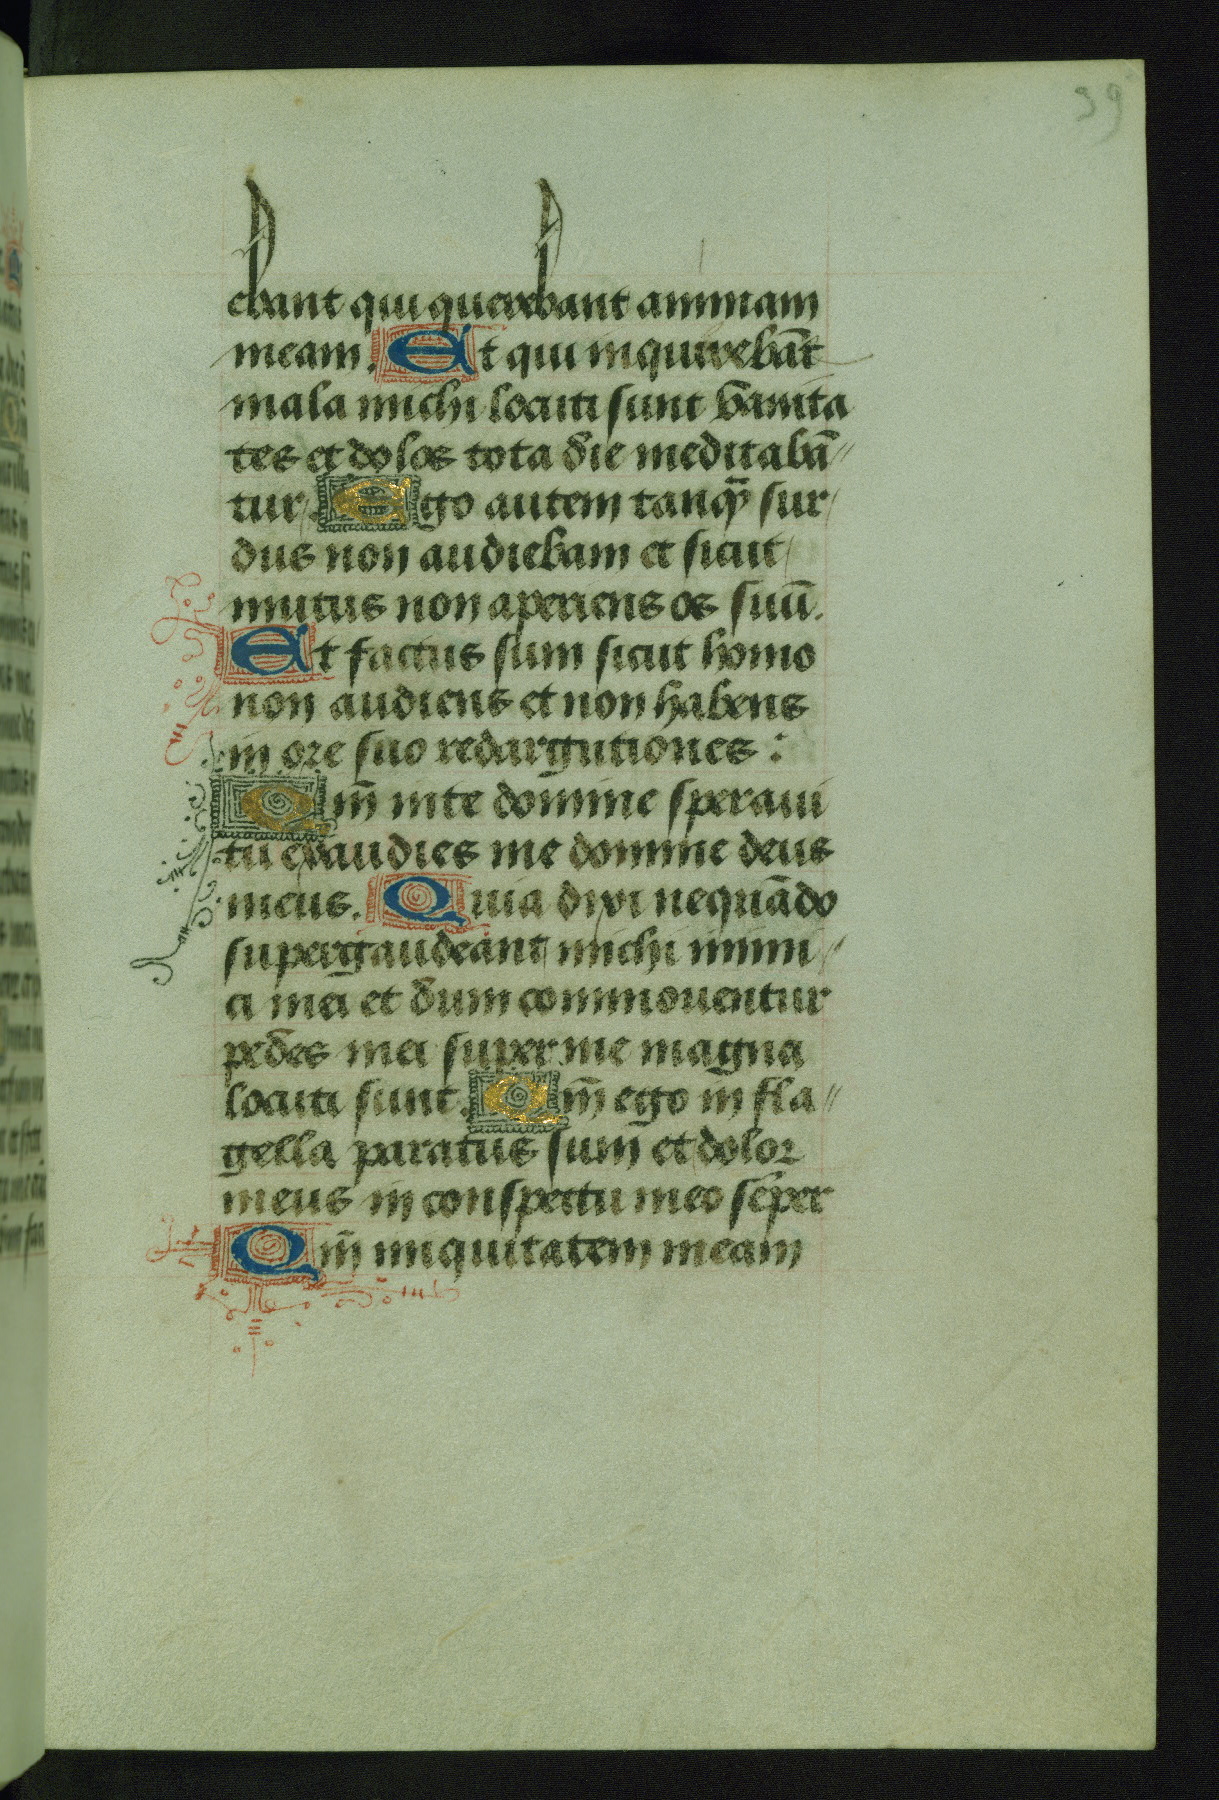 39
ebant qui querebant animam
meam. Et qui inquirebāt
mala michi locuti sunt vanita
tes et dolos tota die meditabā
tur. Ego autem tanq̄ sur
dus non audiebam et sicut
mutus non aperiens os suū.
Et factus sum sicut homo
non audiens et non habens
in ore suo redargutiones:
Qm̄ in te domine speraui
tu exaudies me domine deus
meus. Quia dixi nequādo
supergaudeant michi inimi
ci mei et dum commouentur
pedes mei super me magna
locuti sunt. Qm̄ ego in fla
gella paratus sum et dolor
meus in conspectu meo sēper
Qm̄ iniquitatem meam